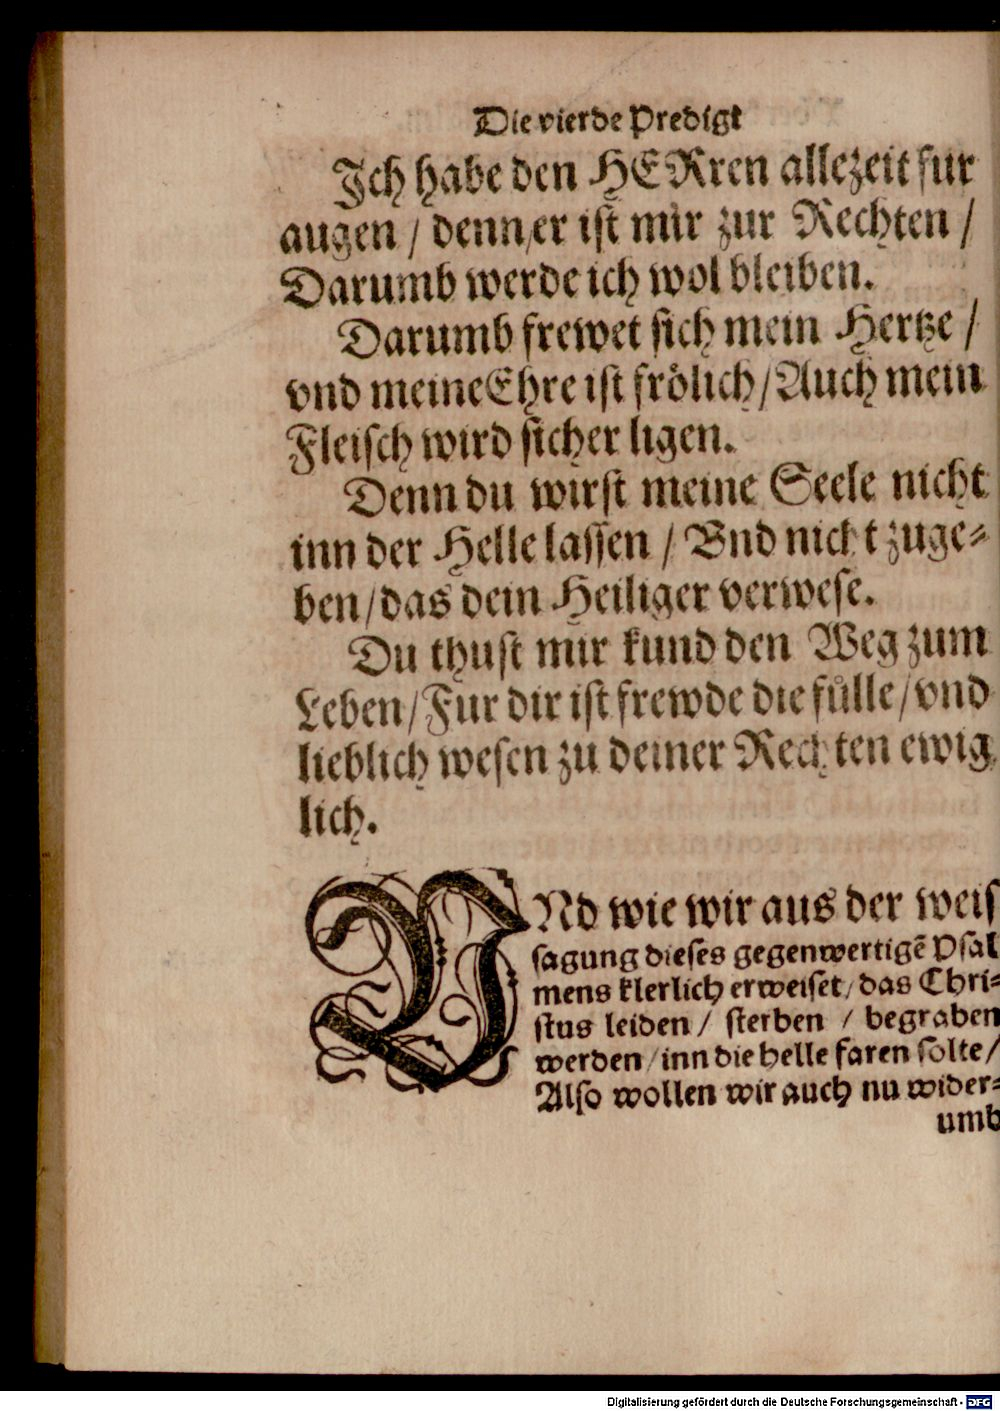 Die vierde Predigt
Ich habe den HERren allezeit fur
augen / denn er ist mir zur Rechten /
Darumb werde ich wol bleiben.
Darumb frewet sich mein Hertze /
vnd meine Ehre ist frölich / Auch mein
Fleisch wird sicher ligen.
Denn du wirst meine Seele nicht
inn der Helle lassen / Vnd nicht zuge⸗
ben / das dein Heiliger verwese.
Du thust mir kund den Weg zum
Leben / Fur dir ist frewde die fülle / vnd
lieblich wesen zu deiner Rechten ewig
lich.
VNd wie wir aus der weis
sagung dieses gegenwertigẽ Psal
mens klerlich erweiset / das Chri⸗
stus leiden / sterben / begraben
werden / inn die helle faren solte /
Also wollen wir auch nu wider⸗
umb
Digitalisierung gefördert durch die Deutsche Forschungsgemeinschaft - DFG